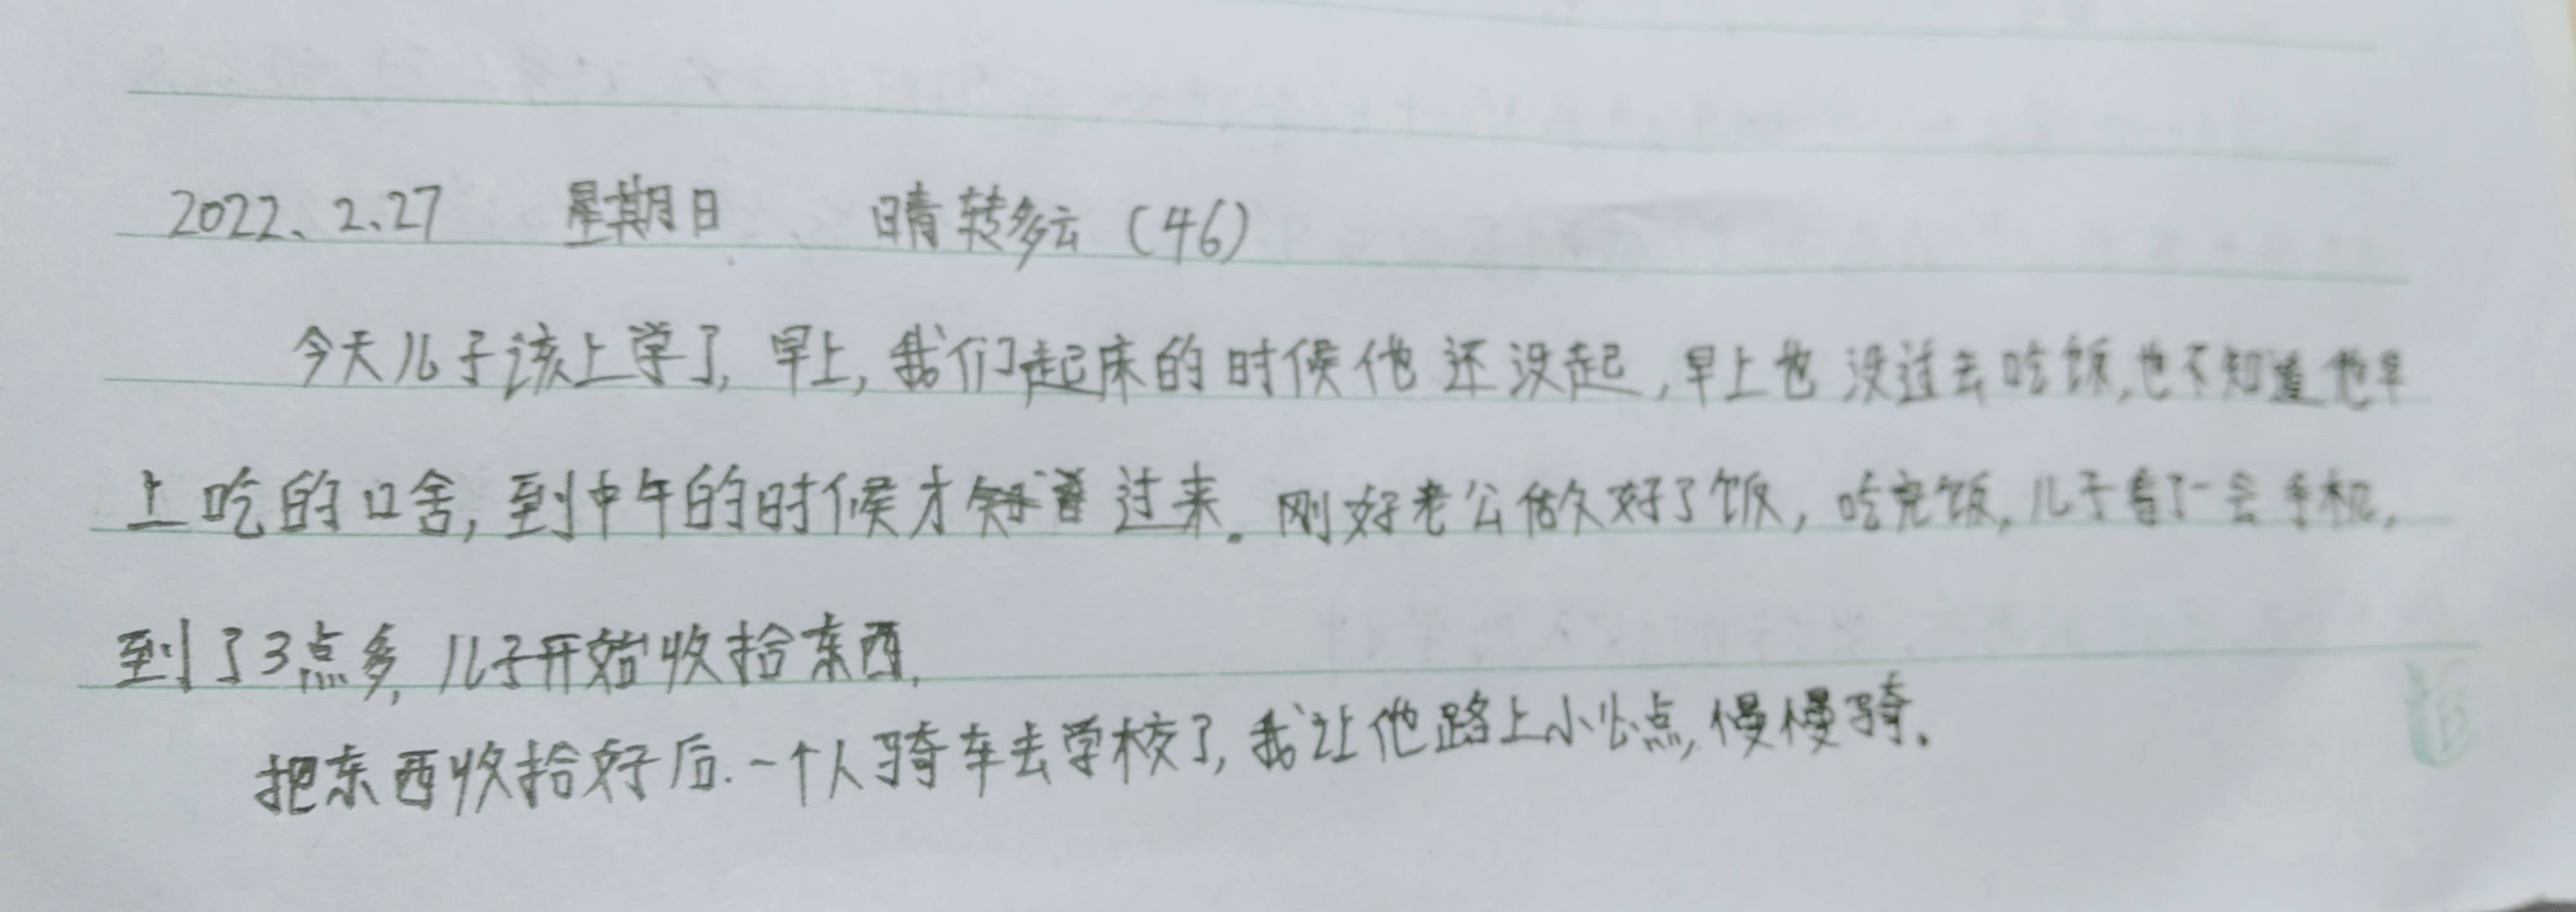 2022、2、27 星期日 晴转多云（46）
今天儿子该上学了，早上，我们起床的时候他还没起，早上也没过去吃饭，也不知道他早
上吃的啥，到中午的时候才过来。刚好老公做好了饭，吃完饭，儿子看了一会手机，
到了3点多，儿子开始收拾东西，
把东西收拾好后.一个人骑车去学校了，我让他路上小心点，慢慢骑。